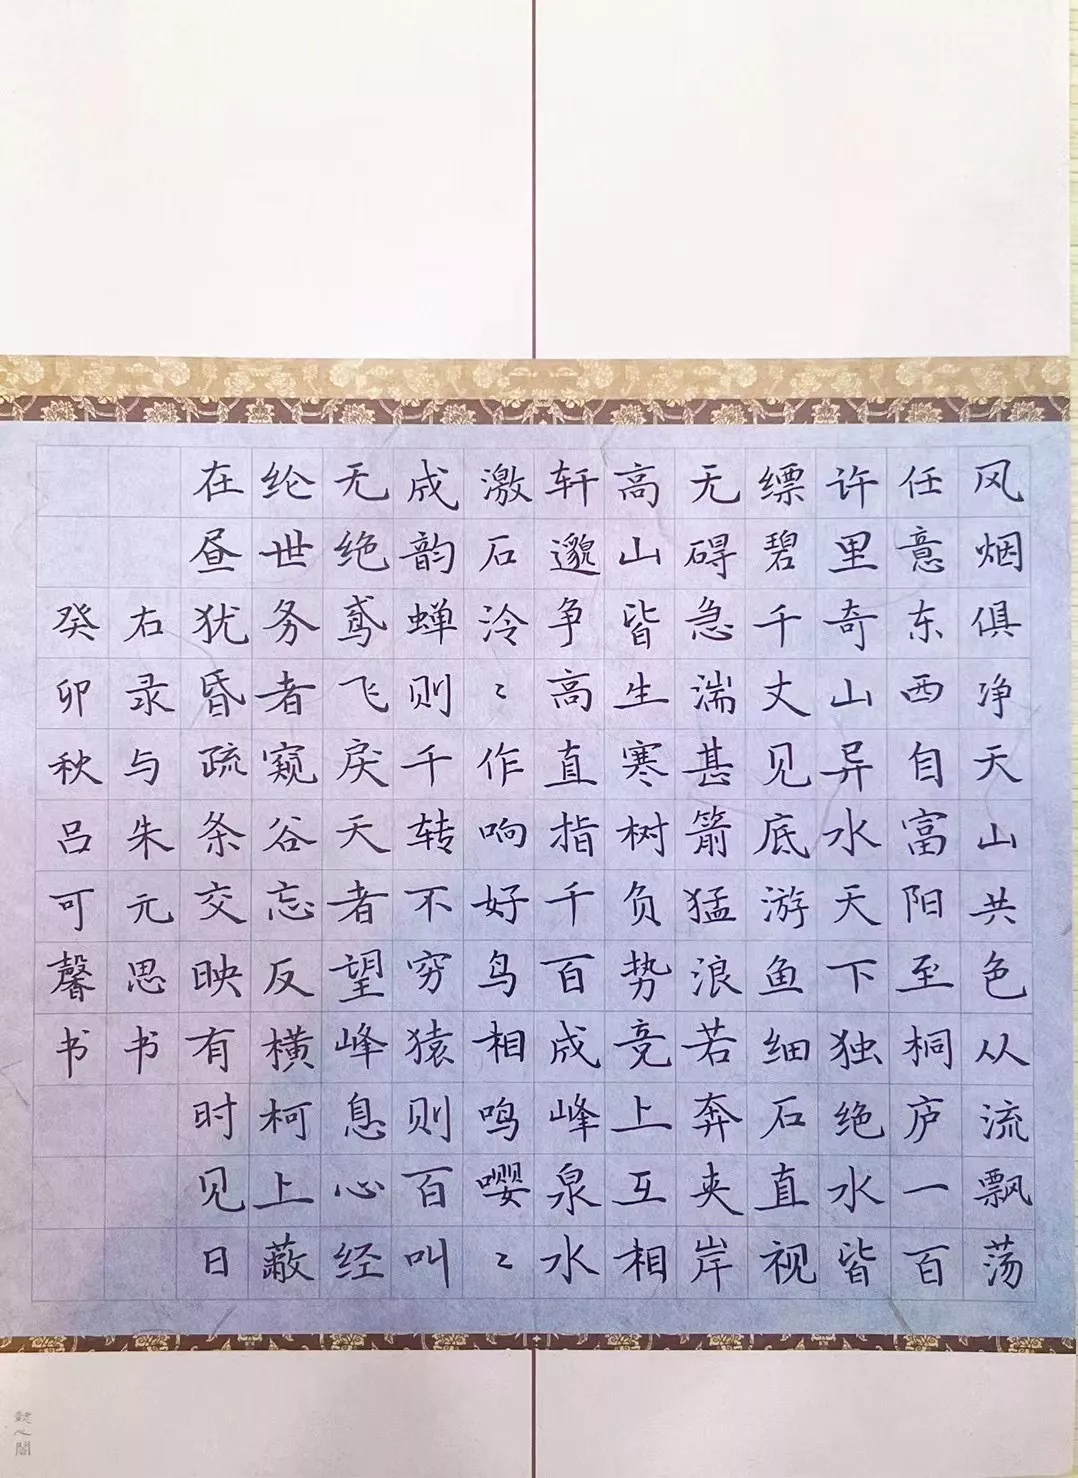 风烟俱净天山共色从流飘荡
任意东西自富阳至桐庐一百
许里奇山异水天下独绝水皆
缥碧千丈见底游鱼细石直视
无碍急湍甚箭猛浪若奔夹岸
高山皆生寒树负势竞上互相
轩邈争高直指千百成峰泉水
激石泠〻作响好鸟相鸣嘤〻
成韵蝉则千转不穷猿则百叫
无绝鸢飞戾天者望峰息心经
纶世务者窥谷忘反横柯上蔽
在昼犹昏疏条交映有时见日
右录与朱元思书
癸卯秋吕可馨书
懿心閣